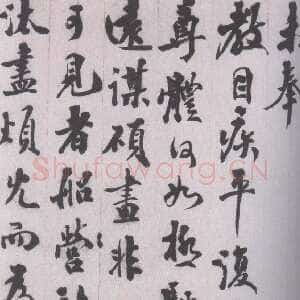 未奉
教目疾平復
尊體何如極
遠謀碩畫非
可見者船營
汰盡煩冗而
Shufawang.CN